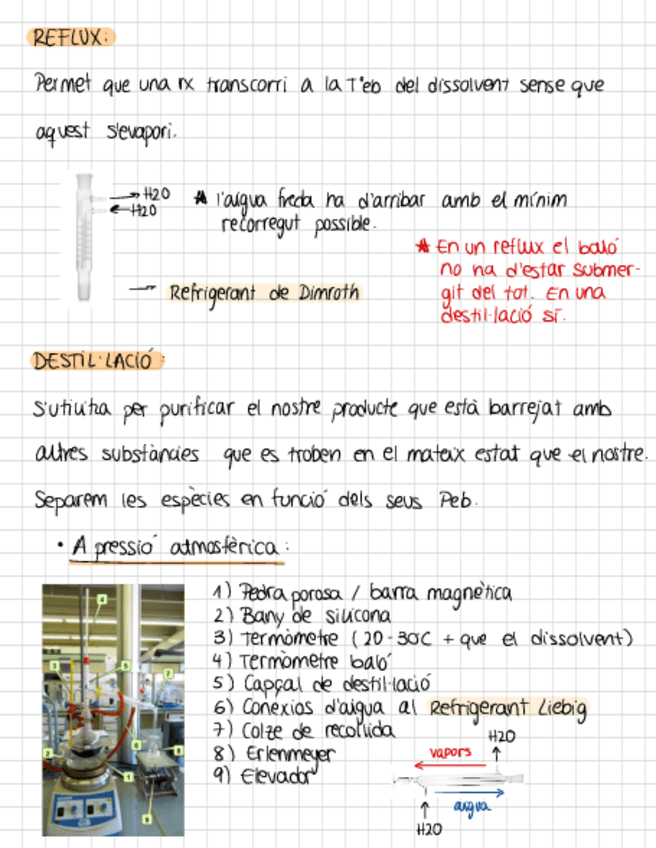 REFLUX:
Permet que una rx transcorri a la T°eb del dissolvent sense que
aquest s'evapori.
H2O
H2O
* l'aigua freda ha d'arribar amb el mínim
recorregut possible.
* En un reflux el baló
no ha d'estar submer-
git del tot. En una
destil·lació sí.
Refrigerant de Dimroth
DESTIL·LACIÓ:
S'utilitza per purificar el nostre producte que està barrejat amb
altres substàncies que es troben en el mateix estat que el nostre.
Separem les espècies en funció dels seus Peb.
• A pressió atmosfèrica:
1) Pedra porosa / barra magnètica
2) Bany de silicona
3) Termòmetre (20-30°C + que el dissolvent)
4) Termòmetre baló
5) Capçal de destil·lació
6) Conexios d'aigua al Refrigerant Liebig
7) Colze de recollida
8) Erlenmeyer
9) Elevador
H2O
vapors
aigua
H2O
4
3
5
7
6
2
1
9